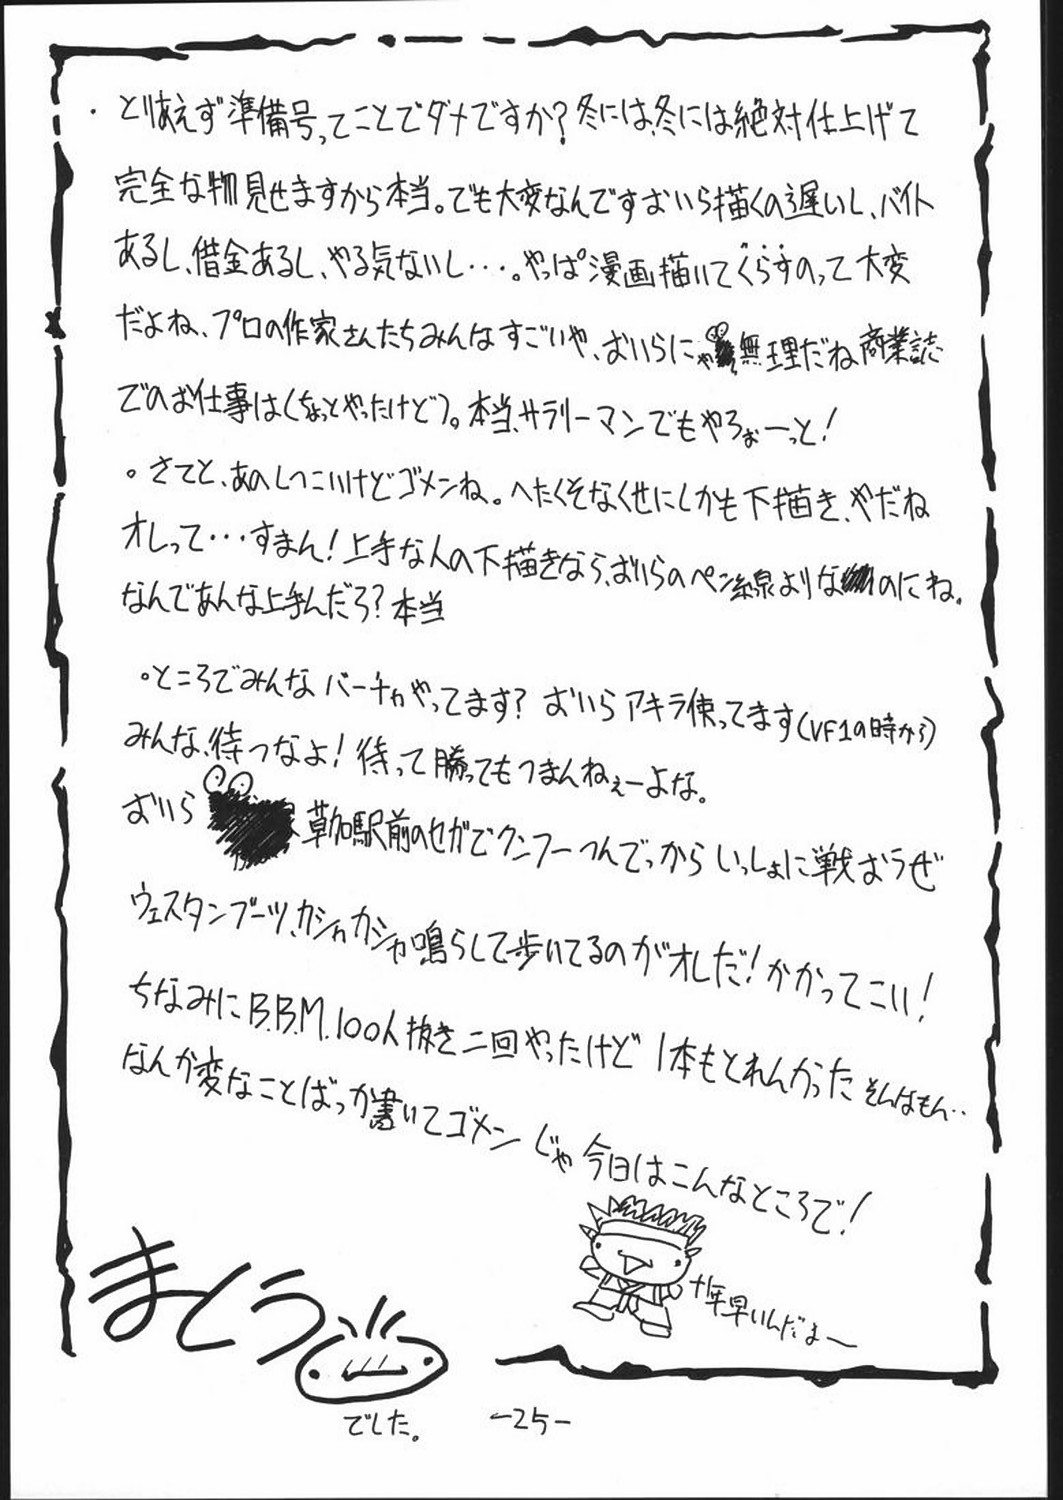 ・とりあえず準備号ってことでダメですか?冬には、冬には絶対仕上げて
完全な物見せますから本当。でも大変なんですおいら描くの遅いし、バイト
あるし、借金あるし、やる気ないし・・・。やっぱ漫画描いてくらすのって大変
だよね、プロの作家さんたちみんなすごいや、おいらにゃ無理だね商業誌
でのお仕事は(ちょっとやったけど)。本当、サラリーマンでもやろぉーっと!
。さてと、あのしつこいけどゴメンね。へたくそなくせにしかも下描き、やだね
オレって・・・すまん!上手な人の下描きなら、おいらのペン線よりな のにね。
なんであんな上手んだろ?本当
。ところでみんなバーチャやってます?おいらアキラ使ってます(VF1の時から)
みんな、待つなよ!待って勝ってもつまんねぇーよな。
おいら 草加駅前のセガでクンフーつんでっからいっしょに戦おうぜ
ウェスタンブーツ、カシャカシャ鳴らして歩いてるのがオレだ!かかってこい!
ちなみにB.B.M.100人抜き二回やったけど1本もとれんかったそんなもん‥
なんか変なことばっか書いてゴメン じゃ今日はこんなところで!
十年早いんだよー
まとう
でした。
-25-